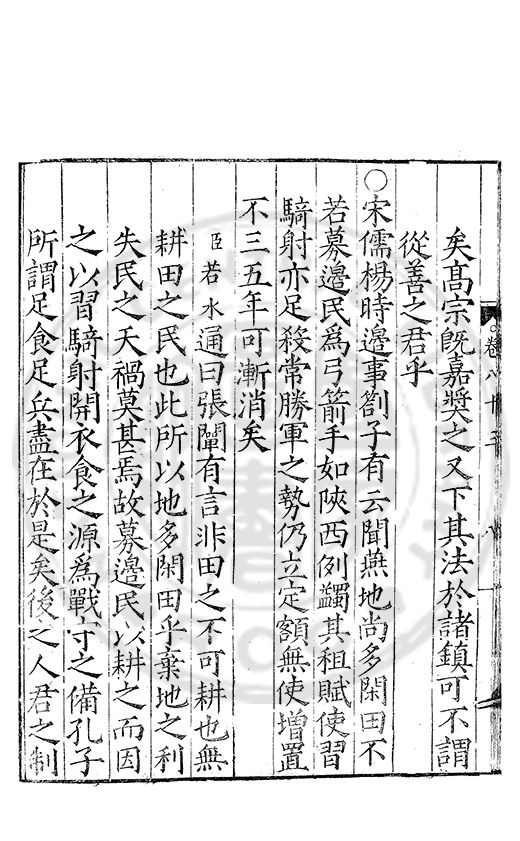 矣髙宗旣嘉奬之又下其法於諸鎮可不謂
從善之君乎
○宋儒楊時邊事劄子有云聞燕地尚多閑田不
若募邊民爲弓箭手如陜西例蠲其租賦使習
騎射亦足殺常勝軍之勢仍立定額無使增置
不三五年可漸消矣
臣若水通曰張闡有言非田之不可耕也無
耕田之民也此所以地多閑田乎棄地之利
失民之天禍莫甚焉故募邊民以耕之而因
之以習騎射開衣食之源爲戰守之備孔子
所謂足食足兵盡在於是矣後之人君之制
卷八十三
八